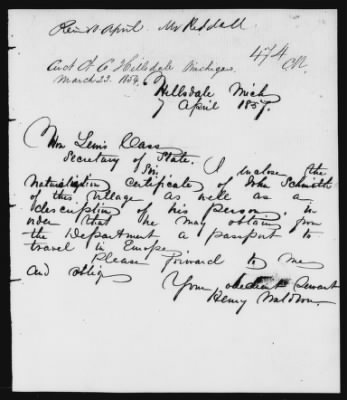 Rec'd April. Mr Reddall
474
Ch.
Circt Ct Co Hillsdale Michigan
March 23. 1854.
Hillsdale Mich
7 April 1857.
Hon Lewis Cass
Secretary of State.
Sir. I inclose the
naturalization certificate of John Schmitt
of this village as well as a
description of his person, in
order that he may obtain from
the Department a passport to
travel in Europe.
Please forward to me
and oblige
Your obedient Servant
Henry Waldron.